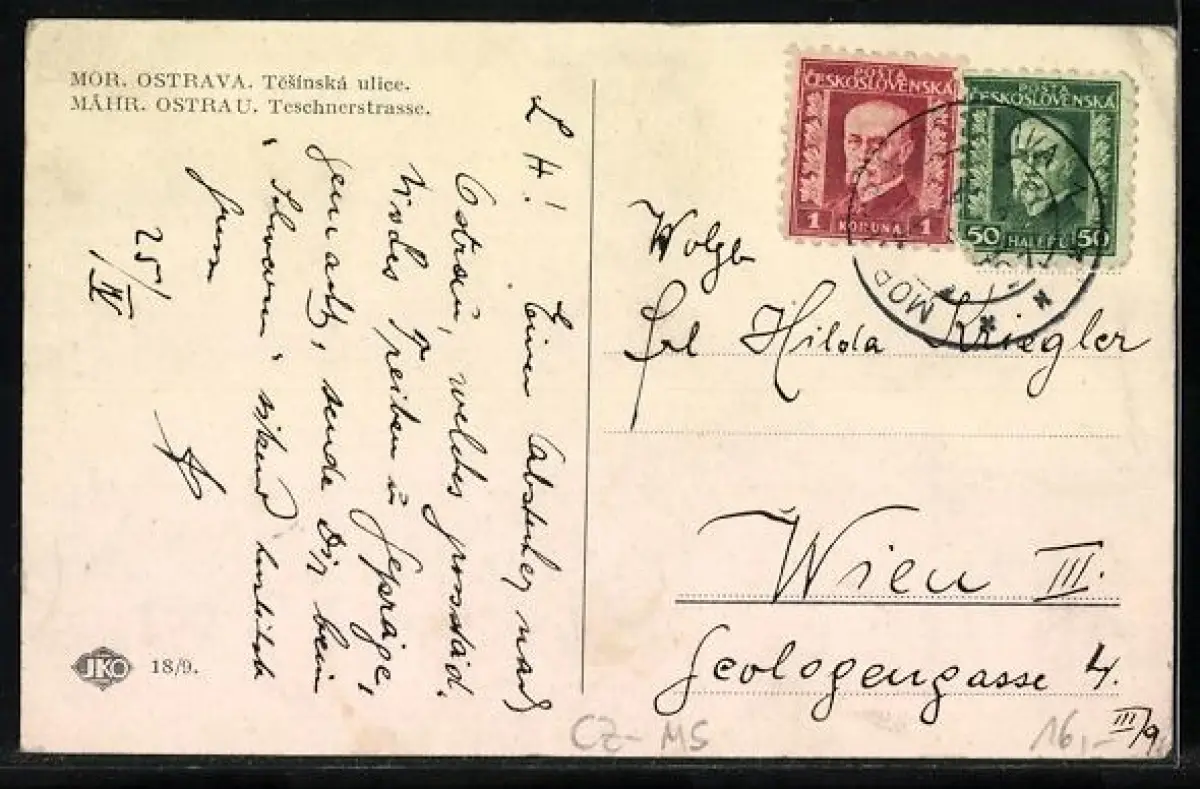 MOR. OSTRAVA. Těšínská ulice.
MÄHR. OSTRAU. Teschnerstrasse.
L H! Einen Abstecher nach
Ostrau, welches grosstädt.
Treiben u Gepräge,
gemacht, sende Dir beim
25/IV
JKO 18/9.
POŠTA
ČESKOSLOVENSKÁ
1 KORUNA 1
POŠTA
ČESKOSLOVENSKÁ
50 HALÉŘŮ 50
MOR
Wolgb
Frl Hilda Kriegler
Wien III.
Geologengasse 4.
III/9
CZ-MS
16,-